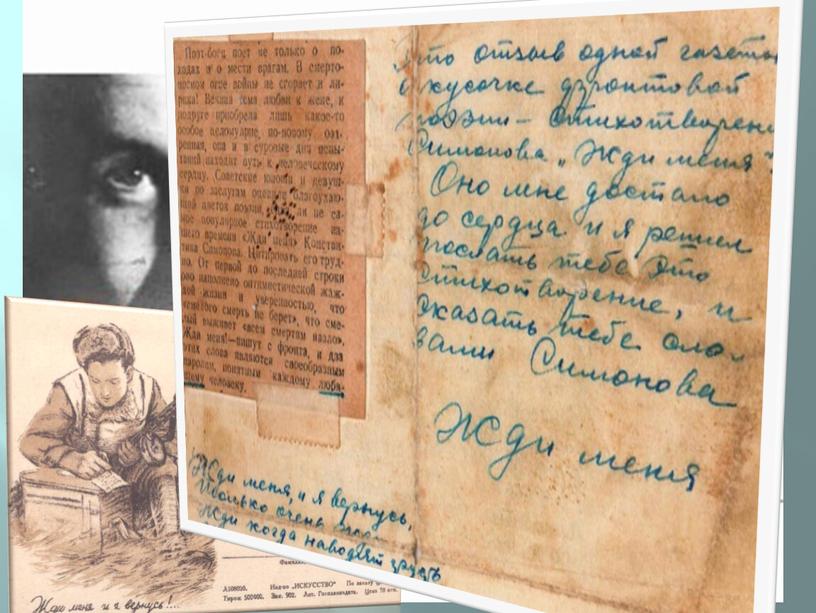 Поэт-боец поет не только о по-
ходах и о мести врагам. В смерто-
носном огне войны не сгорает и ли-
рика! Вечная тема любви к жене, к
подруге приобрела лишь какое-то
особое целомудрие, по-новому
она и в суровые дни испы-
таний находит путь к человеческому
сердцу. Советские юноши и девуш-
ки по заслугам оценили
цветок поэзии, ли не са-
мое популярное стихотворение на-
шего времени «Жди меня» Констан-
тина Симонова. Цитировать его труд-
но. От первой до последней строки
оно наполнено оптимистической жаж-
дой жизни и уверенностью, что
смерть не берет», что сме-
лый выживет «всем смертям назло».
«Жди меня!—пишут с фронта, и два
этих слова являются своеобразным
паролем, понятным каждому любя-
щему человеку.
Жди меня, и я вернусь,
Только очень
Жди когда наводят грусть
Это отзыв одной газеты
о кусочке фронтовой
поэзии — Стихотворени
Симонова „Жди меня"
Оно мне достало
до сердца и я решил
послать тебе это
стихотворение, и
сказать тебе сло-
вами Симонова
Жди меня
А108020. Изд-во „ИСКУССТВО" По заказу
Тираж 500000. Зак. 902. Цена 20 коп.
Жди меня и я вернусь!...